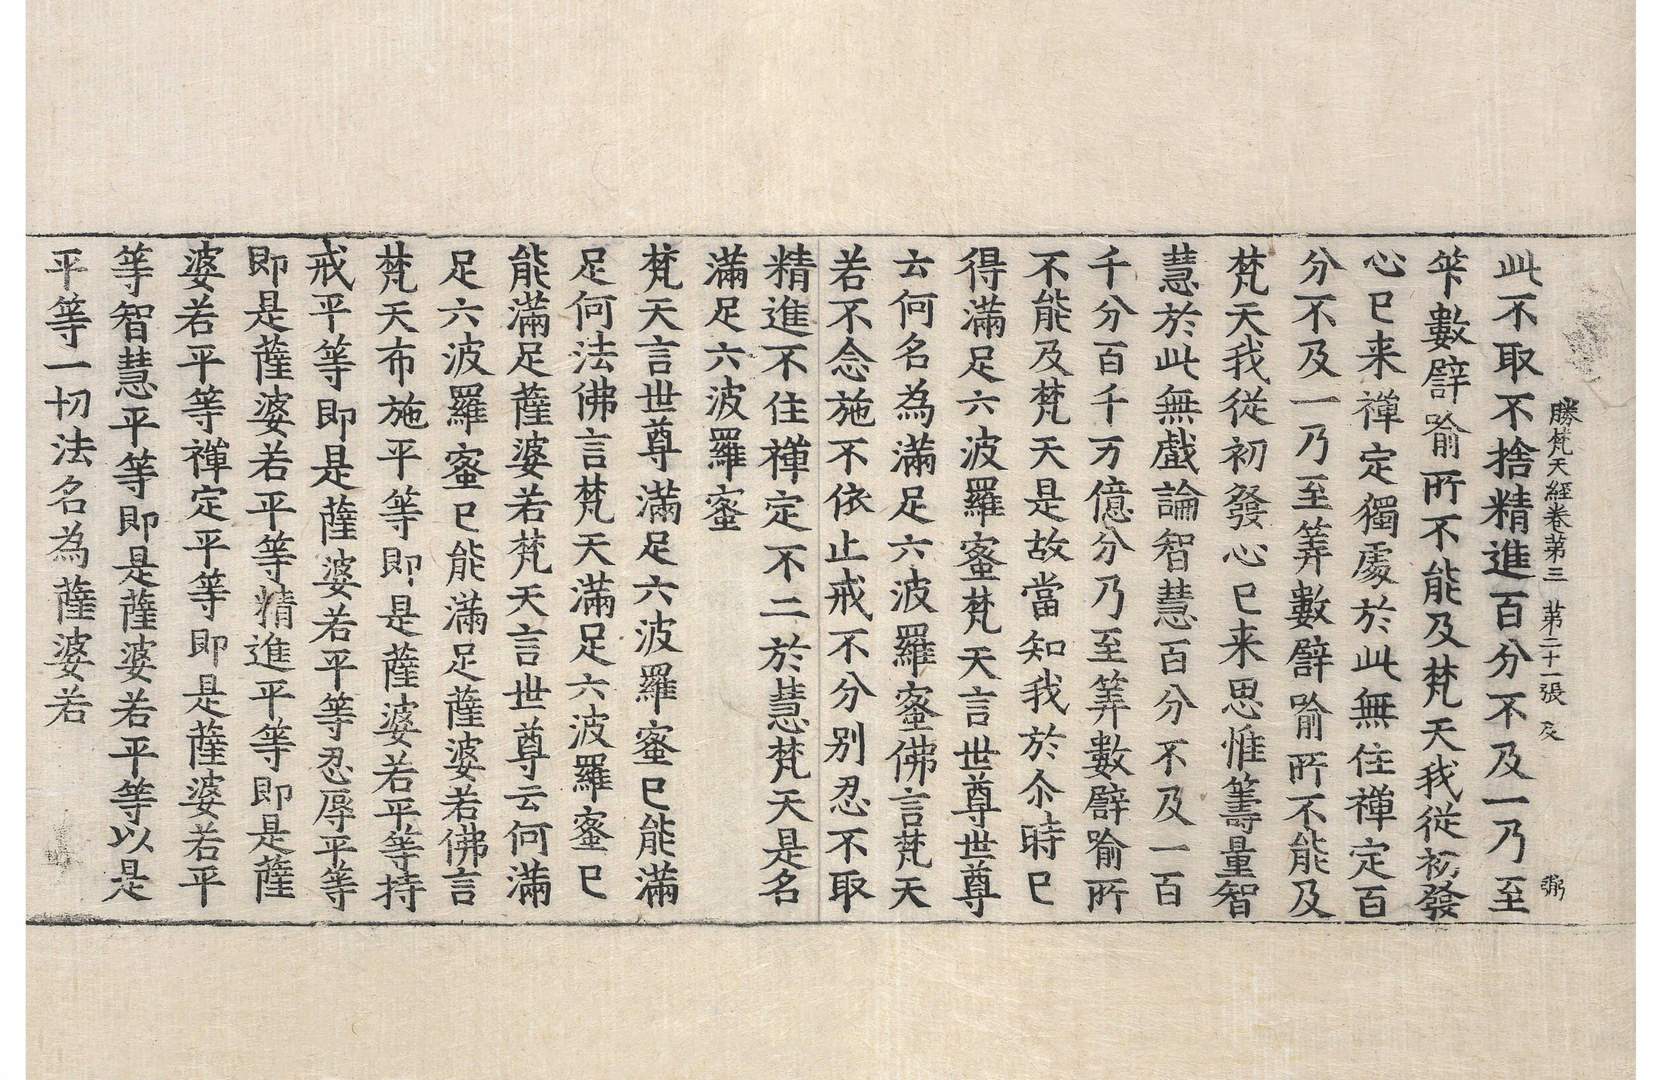 勝梵天經卷第三　第二十一張　及　弼
此不取不捨精進百分不及一乃至
筭數譬喻所不能及梵天我從初發
心已来禪定獨處於此無住禪定百
分不及一乃至筭數譬喻所不能及
梵天我從初發心已来思惟籌量智
慧於此無戲論智慧百分不及一百
千分百千万億分乃至筭數譬喻所
不能及梵天是故當知我於尒時已
得滿足六波羅蜜梵天言世尊世尊
云何名為滿足六波羅蜜佛言梵天
若不念施不依止戒不分別忍不取
精進不住禪定不二於慧梵天是名
滿足六波羅蜜
梵天言世尊滿足六波羅蜜已能滿
足何法佛言梵天滿足六波羅蜜已
能滿足薩婆若梵天言世尊云何滿
足六波羅蜜已能滿足薩婆若佛言
梵天布施平等即是薩婆若平等持
戒平等即是薩婆若平等忍辱平等
即是薩婆若平等精進平等即是薩
婆若平等禪定平等即是薩婆若平
等智慧平等即是薩婆若平等以是
平等一切法名為薩婆若